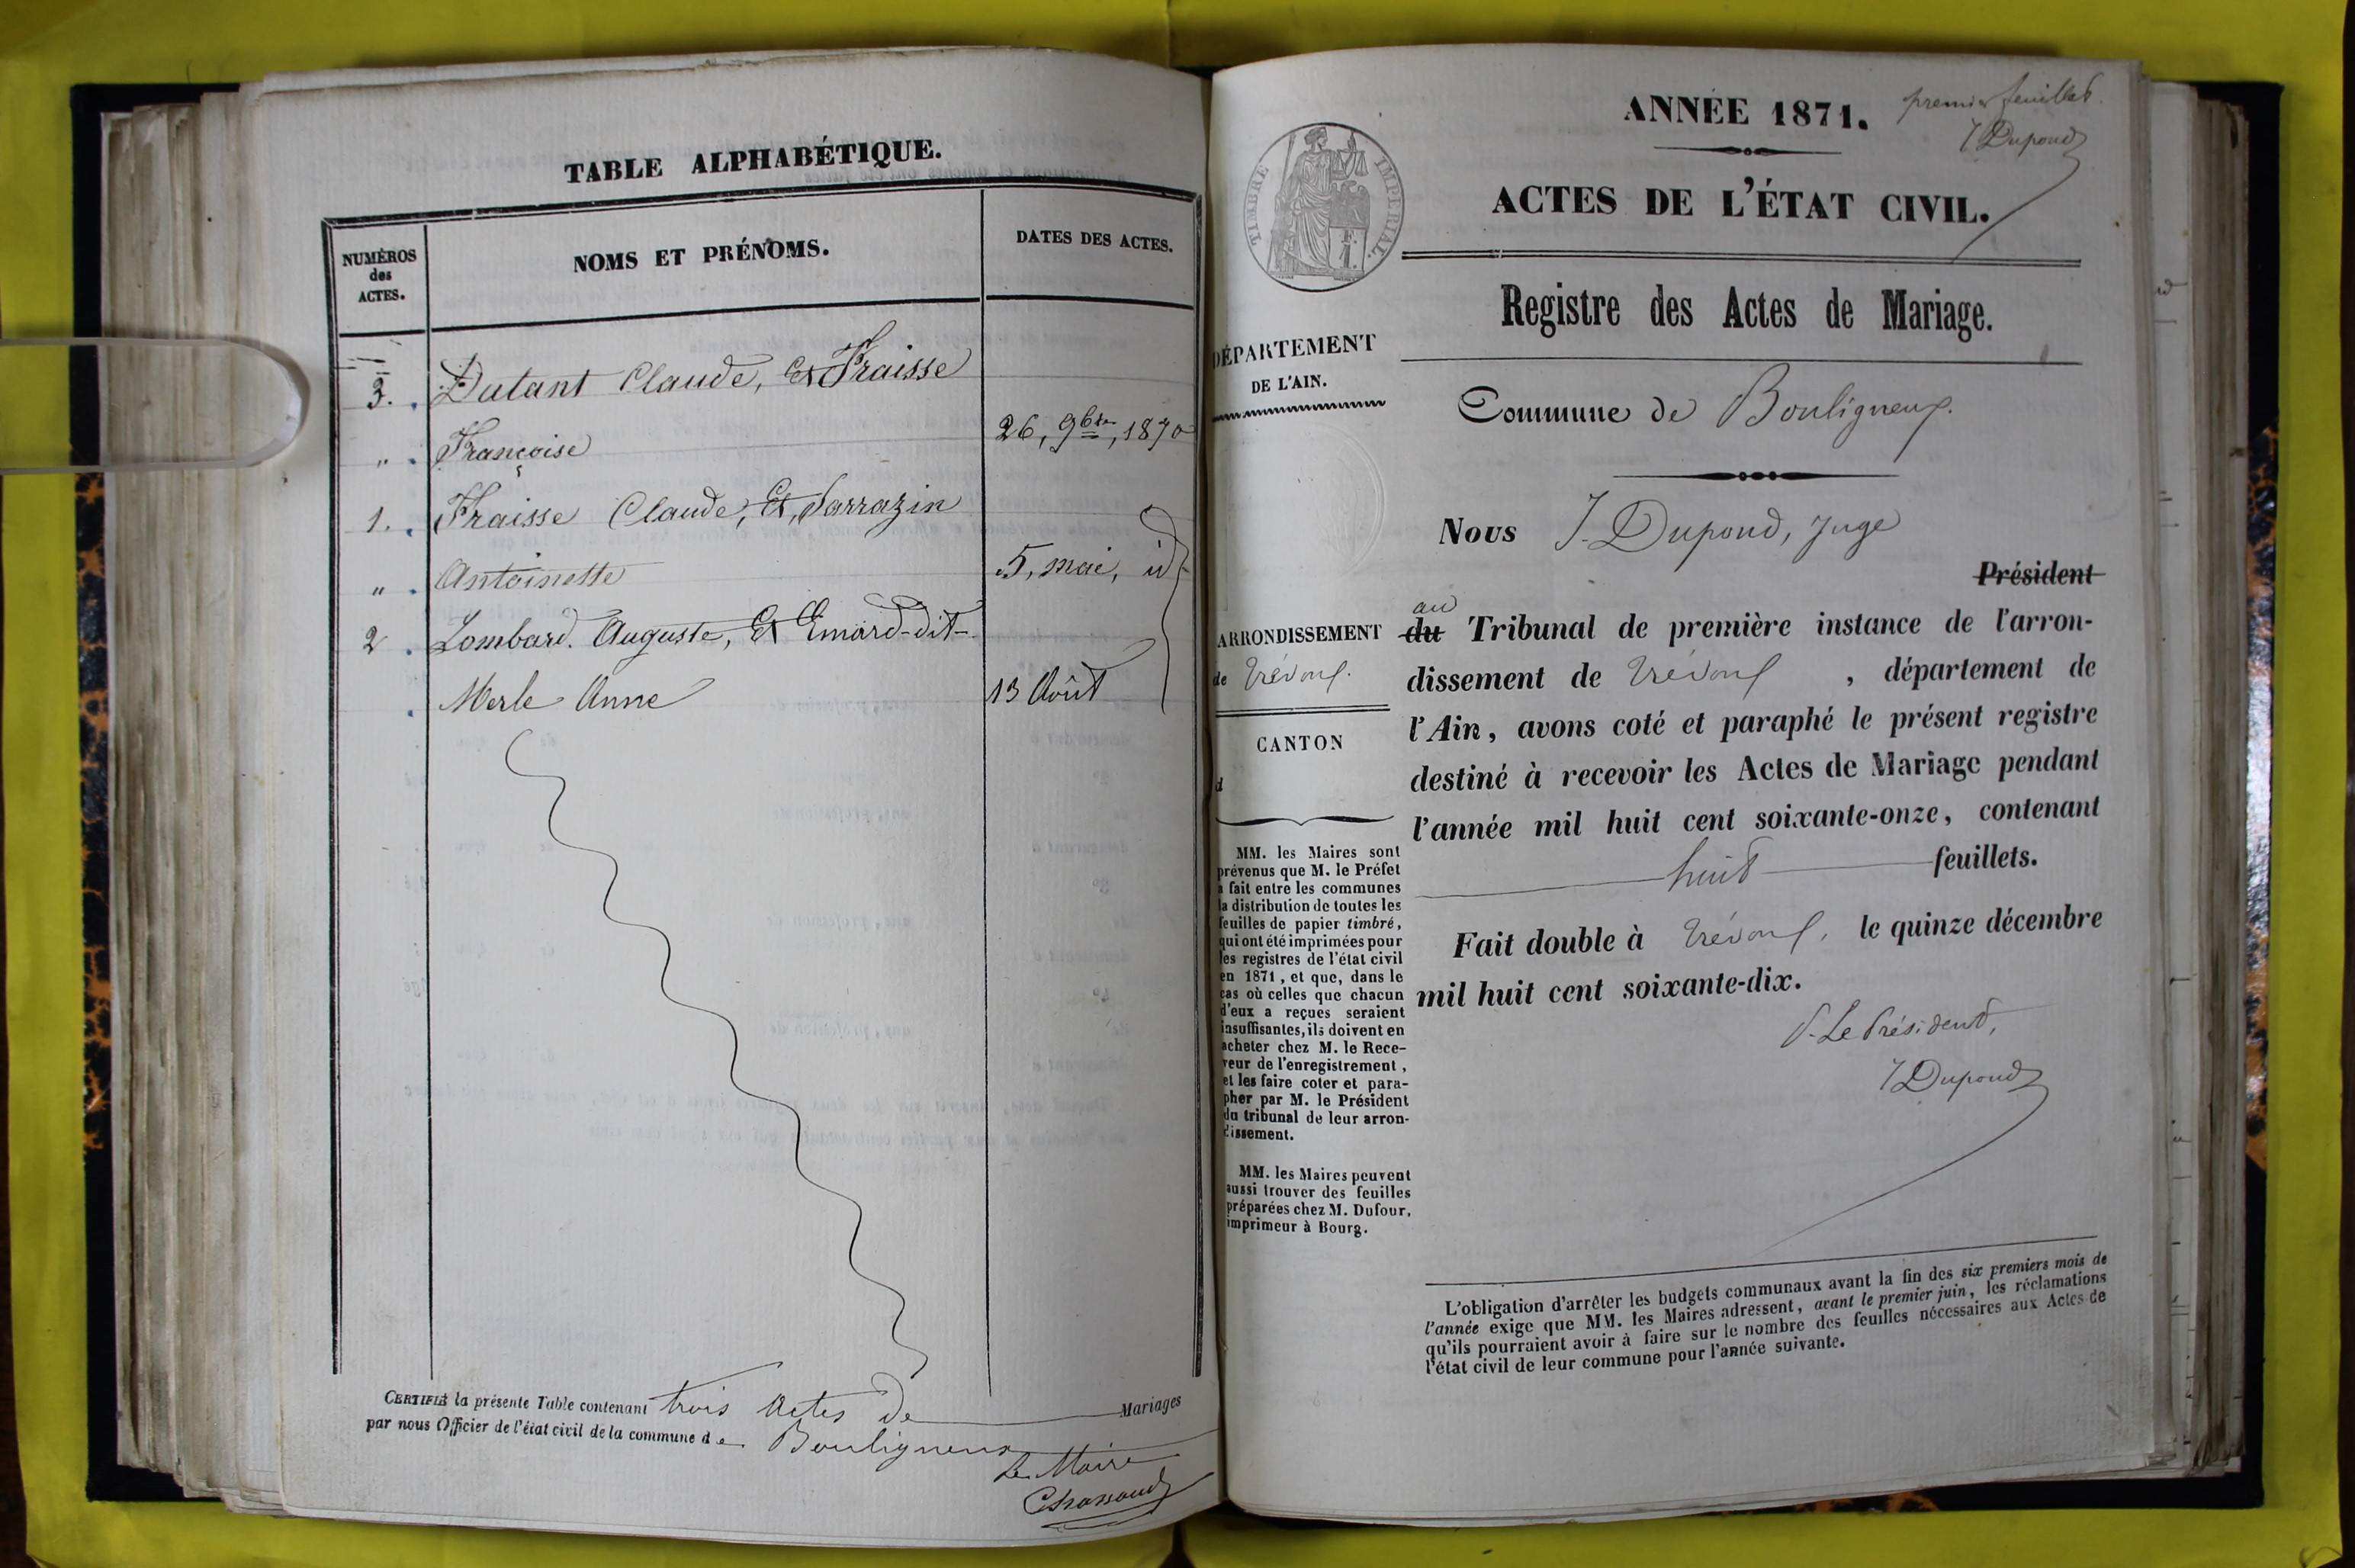 TABLE ALPHABÉTIQUE.
NUMÉROS
des
ACTES.
NOMS ET PRÉNOMS.
DATES DES ACTES.
3. Dutant Claude, Et Fraisse
" Françoise 26, 9bre, 1870
1. Fraisse Claude, Et, Sarrazin
" Antoinette 5, mai, id
2 Lombard. Auguste, Et Emard-dit-
Merle Anne 13 Août
CERTIFIÉ la présente Table contenant trois Actes de Mariages
par nous Officier de l'état civil de la commune de Bouligneux
Le Maire
premier feuillet.
J Dupond
ANNÉE 1871.
ACTES DE L'ÉTAT CIVIL.
TIMBRE IMPERIAL.
F.
1.
Registre des Actes de Mariage.
DÉPARTEMENT
DE L'AIN.
Commune de Bouligneux.
Nous J. Dupond, Juge
Président
au
du Tribunal de première instance de l'arron-
dissement de Trévoux, département de
l'Ain, avons coté et paraphé le présent registre
destiné à recevoir les Actes de Mariage pendant
l'année mil huit cent soixante-onze, contenant
huit feuillets.
Fait double à Trévoux, le quinze décembre
mil huit cent soixante-dix.
P. Le Président,
J Dupond
ARRONDISSEMENT
de Trévoux.
CANTON
d
MM. les Maires sont
prévenus que M. le Préfet
a fait entre les communes
la distribution de toutes les
feuilles de papier timbré,
qui ont été imprimées pour
les registres de l'état civil
en 1871, et que, dans le
cas où celles que chacun
d'eux a reçues seraient
insuffisantes, ils doivent en
acheter chez M. le Rece-
veur de l'enregistrement,
et les faire coter et para-
pher par M. le Président
du tribunal de leur arron-
dissement.
MM. les Maires peuvent
aussi trouver des feuilles
préparées chez M. Dufour,
imprimeur à Bourg.
L'obligation d'arrêter les budgets communaux avant la fin des six premiers mois de
l'année exige que MM. les Maires adressent, avant le premier juin, les réclamations
qu'ils pourraient avoir à faire sur le nombre des feuilles nécessaires aux Actes de
l'état civil de leur commune pour l'année suivante.